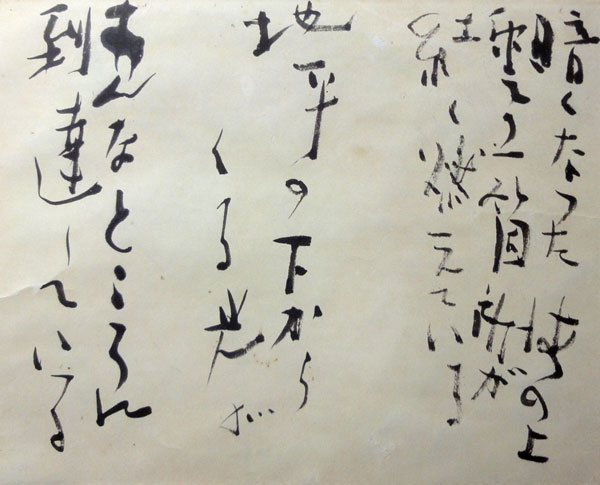 暗くなった海の上
雲の一箇所が
紅く燃えている
地平の下から
くる光が
あんなところに
到達している